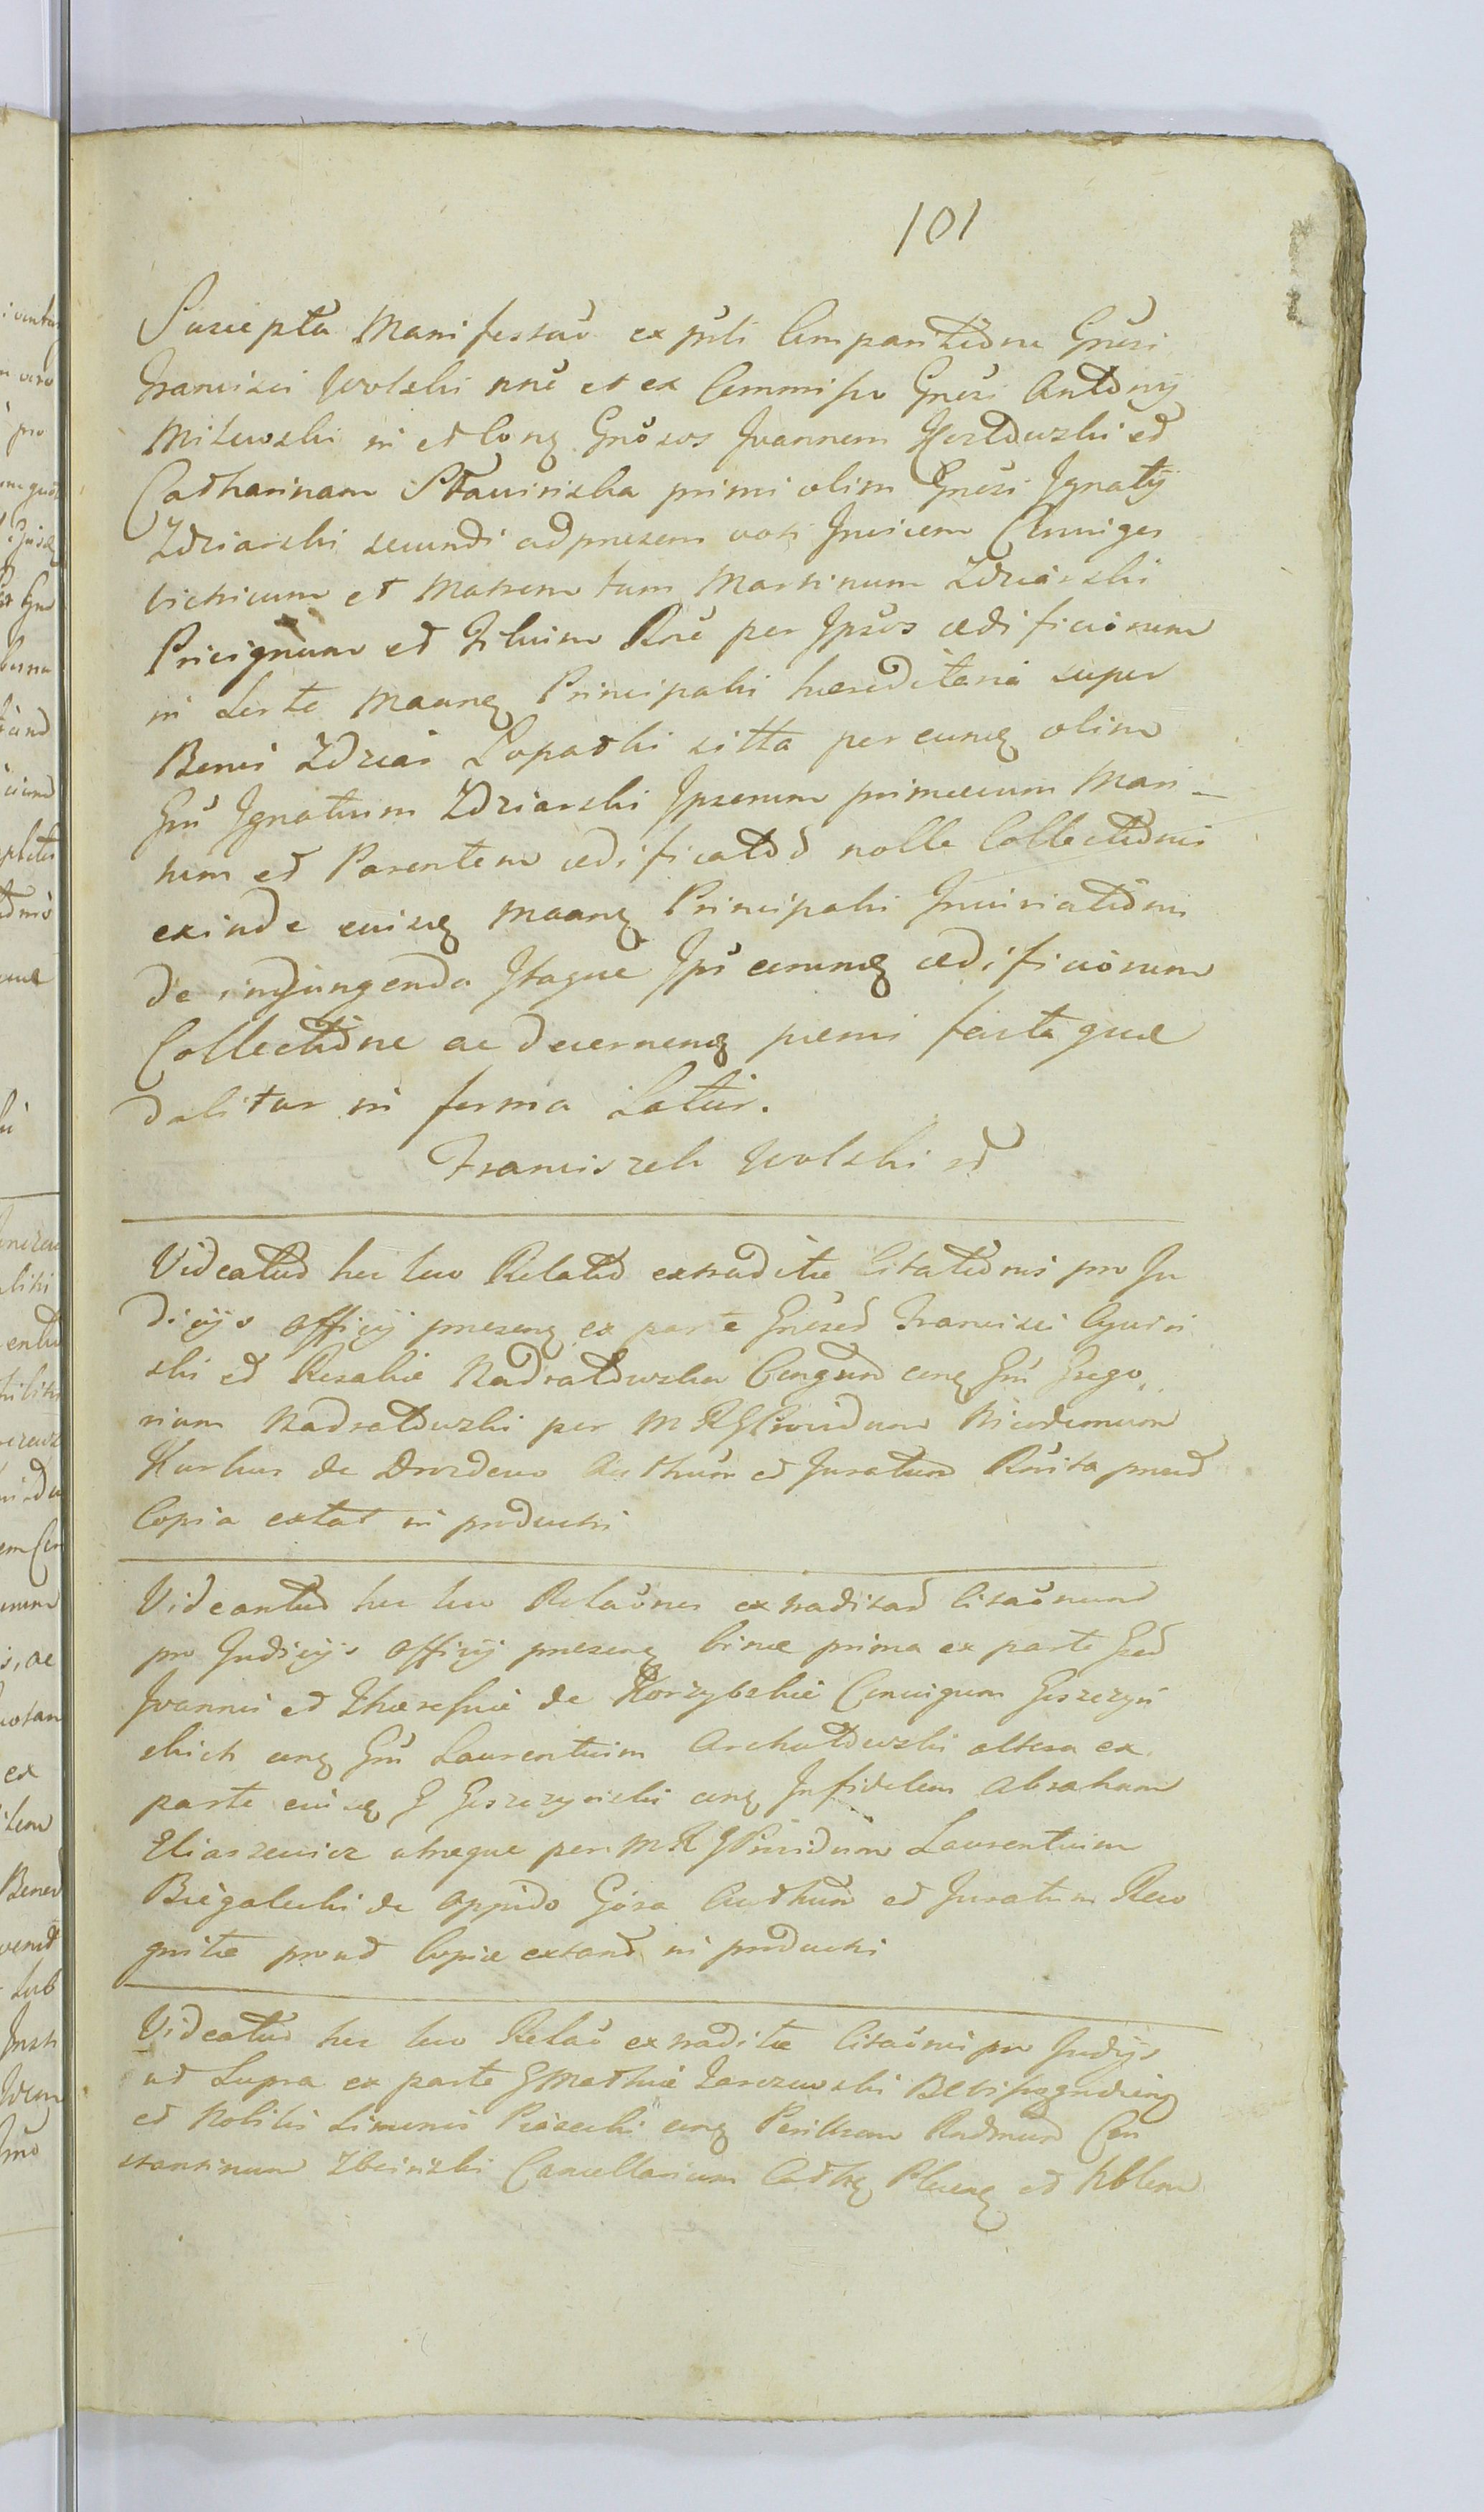 101
Suscepta Manifestaō ex prsti Comparitione Gnrosi
Francisci Wolski nnē et ex Commisso Gnrosi Antonij
Milewski in et conq Gnrosos Joannem Kozłowski et
Catharinam Sławińska primi olim Gnrosi Ignatij
Zdziarski secundi ad praesens voti Invicem Conniges
vitricum et Matrem tum Martinum Zdziarski
Privignum et Filium Rnē per Ipsos aedificiorum
in Sorte Mannq Principalis haereditaria super
Bonis Zdziar Łopatki sitta per eumq olim
Gn Ignatium Zdziarski Ipsorum primaevum Mari-
tum et Parentem aedificatō nolle Collectionis
exinde eiusq Mannq Principalis Inuriationis
de injungenda Itaque Ips eorumq aedificiorum
Collectione ac decernenq poenis facta quae
dabitur in forma Latiori.
Franciszek Wolski
Videatur hic loco Relatio extraditae Citationis pro Ju
dicijs Officij praesenq ex parte Gnrosor Francisci
ski et Rosaliae Nadratowska Conjgum conq Gn Grego
rium Nadratowski per M R G Providum Nicodemum
de Drozdowo Authum et Juratum Rnita prout
Copia extat in producti
Videantur hic loco Relaōnes extraditar Citaōnum
pro Judicijs Officij praesenq binae prima ex parte Gror
Joannis et Theressiae de Korzybskie Conuigum Goszczyń
skich conq Gn Laurentium altera ex
parte eiusq G Goszczyński conq Infidelem Abraham
Eliaszewicz utraque per M R G Providum Laurentium
Biegalski de oppido Góra Authum et Juratum Reco
gnitae prout Copiae extant in producti
Videatur hic loco Relaō extraditae Citaōnis pro Judijs
ut Supra ex parte G Mathiae
et Nobilis Simonis Piasecki conq Perillrem Rndmum Con
stantinum Zboiński Cancellarium Cathq Plocenq et Nblem